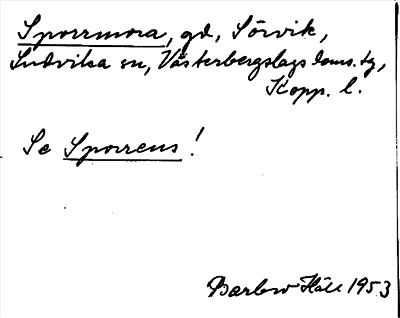 Sporrmora, gd, Sörvik,
Ludvika sn, Västerbergslags doms.tg,
Kopp. l.
Se Sporrens!
Barbro Häll 1953